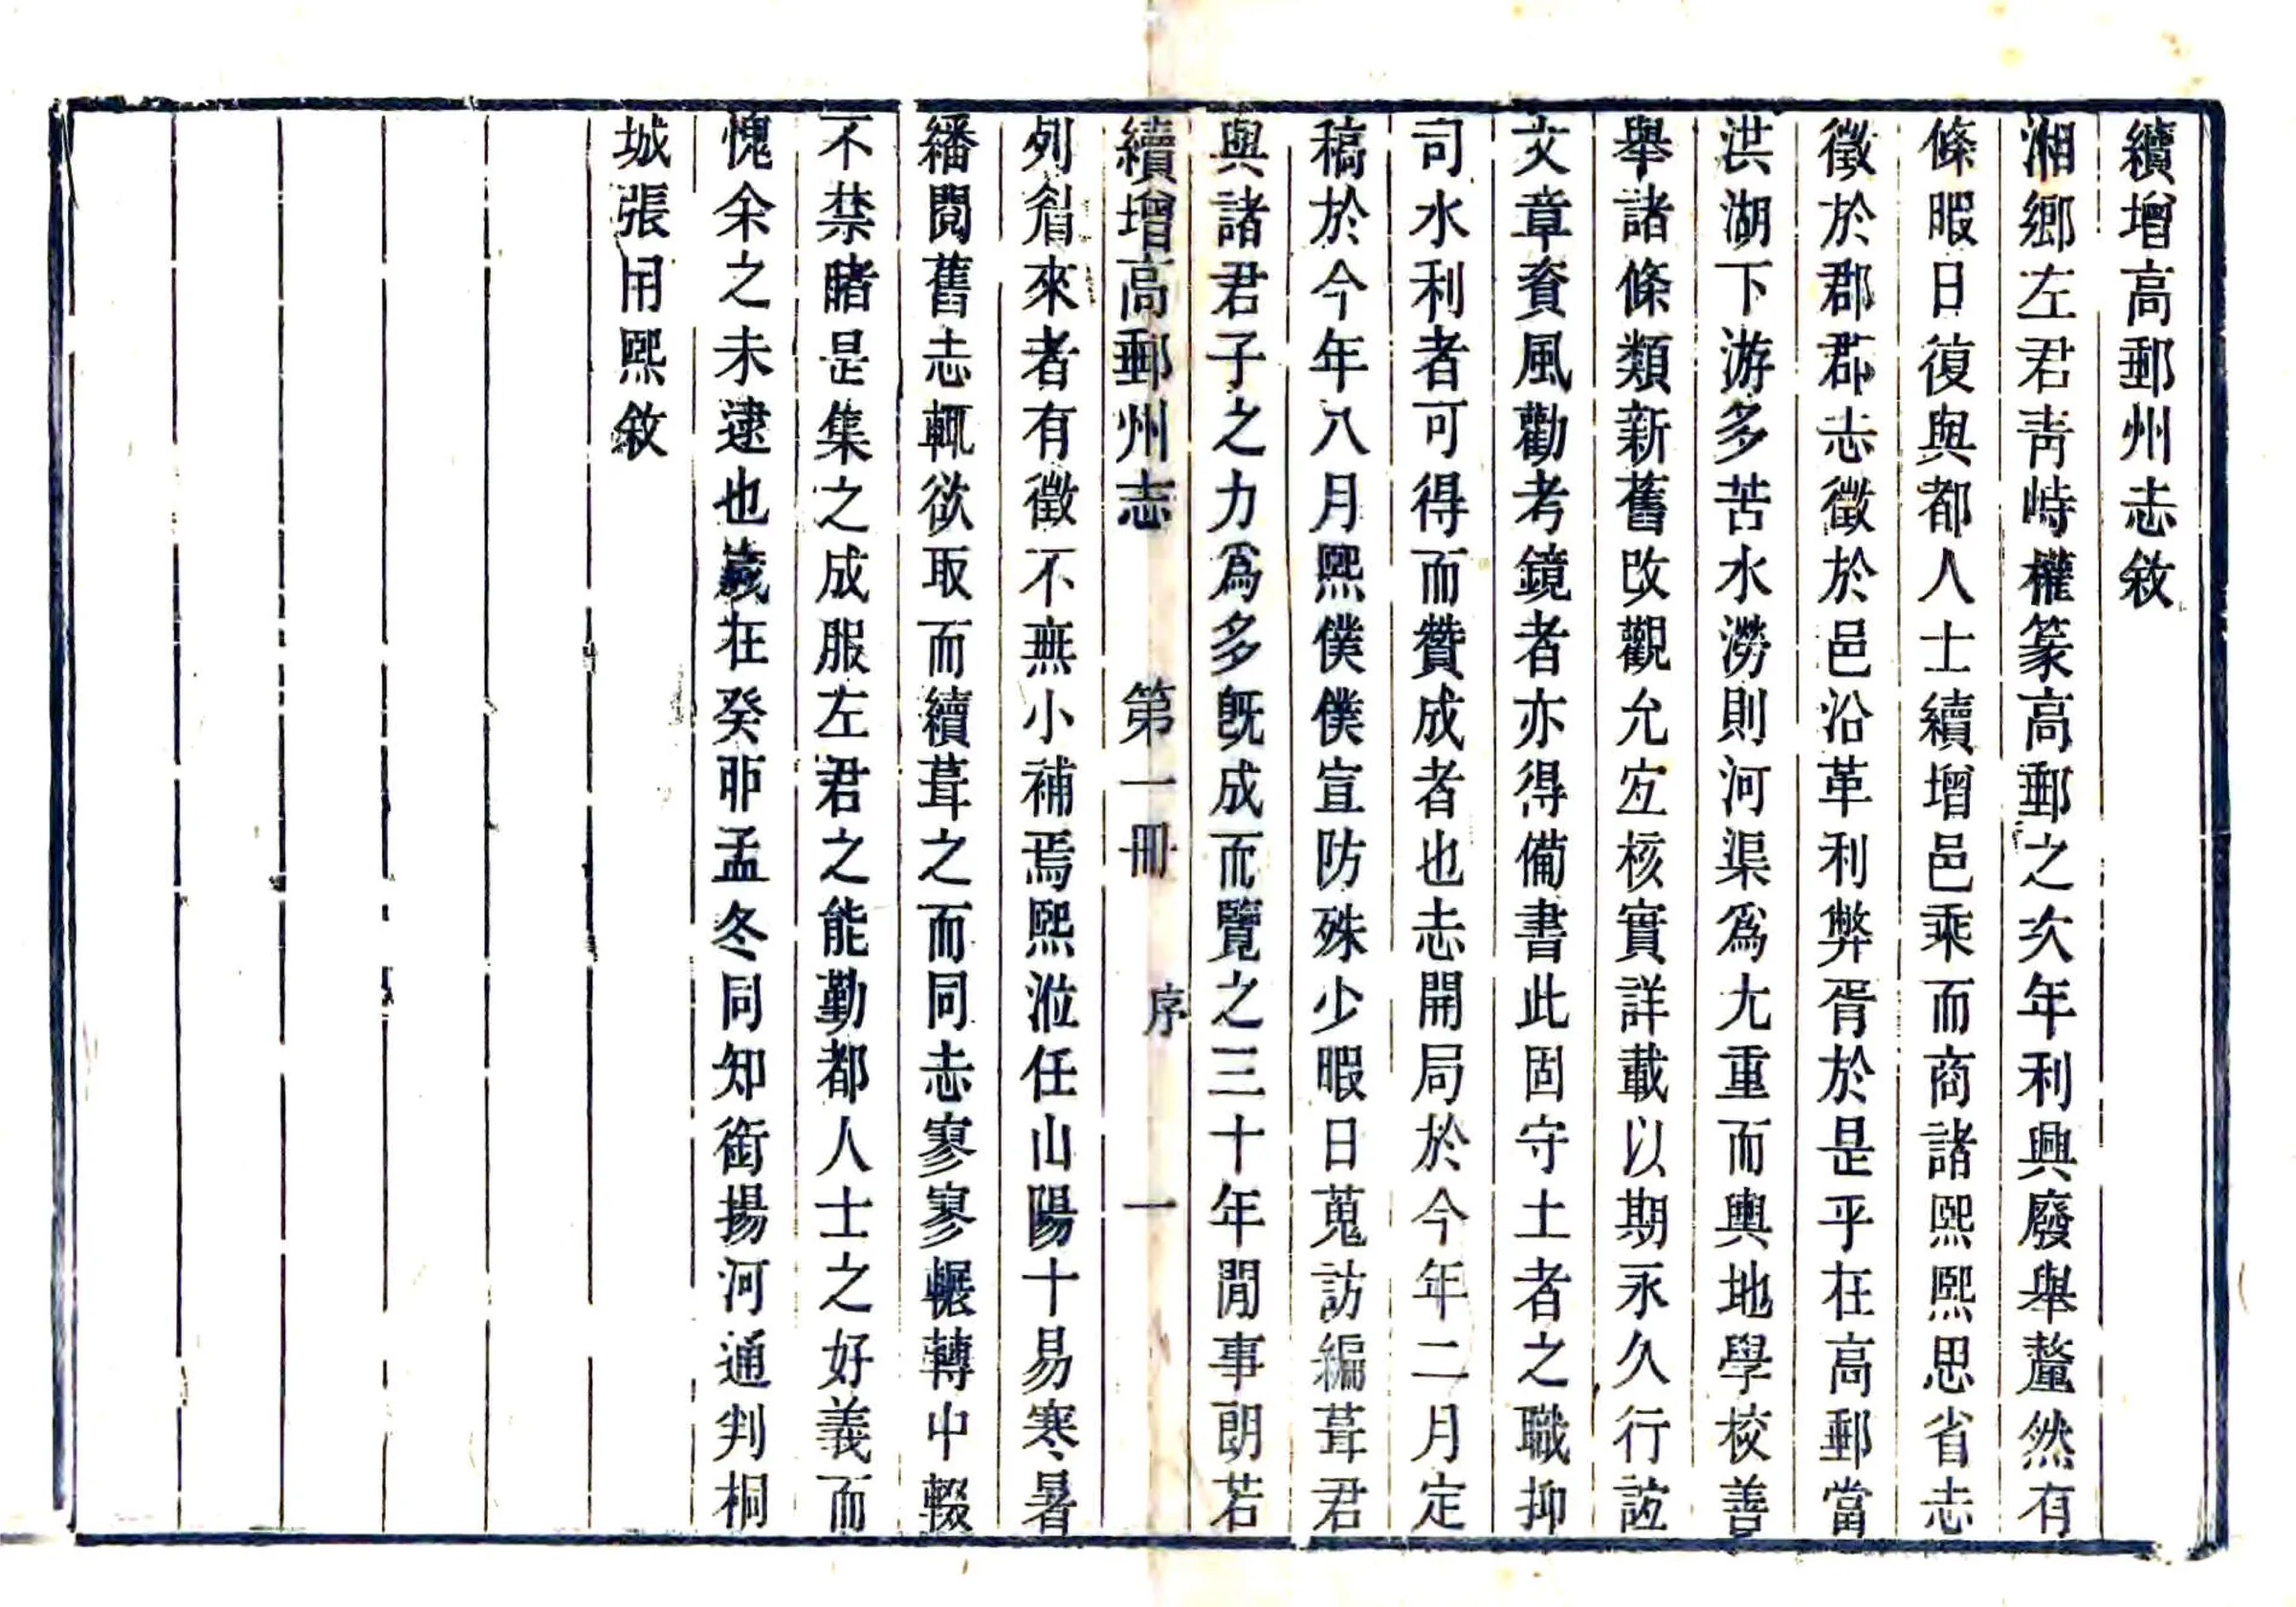 續增高郵州志敘
湘鄉左君青峙權篆高郵之次年利興廢舉釐然有
條暇日復與都人士續增邑乘而商諸熙熙思省志
徵於郡郡志徵於邑沿革利弊胥於是乎在高郵當
洪湖下游多苦水澇則河渠爲尢重而輿地學校善
舉諸條類新舊改觀允宐核實詳載以期永久行誼
文章資風勸考鏡者亦得備書此固守土者之職抑
司水利者可得而贊成者也志開局於今年二月定
稿於今年八月熙僕僕宣防殊少暇日蒐訪編葺君
與諸君子之力爲多旣成而覽之三十年閒事朗若
續增高郵州志 第一冊 序 一
列眉來者有徵不無小補焉熙涖任山陽十易寒暑
繙閱舊志輒欲取而續葺之而同志寥寥輾轉中輟
不禁睹是集之成服左君之能勤都人士之好義而
愧余之未逮也歲在癸卯孟冬同知銜揚河通判桐
城張用熙敘